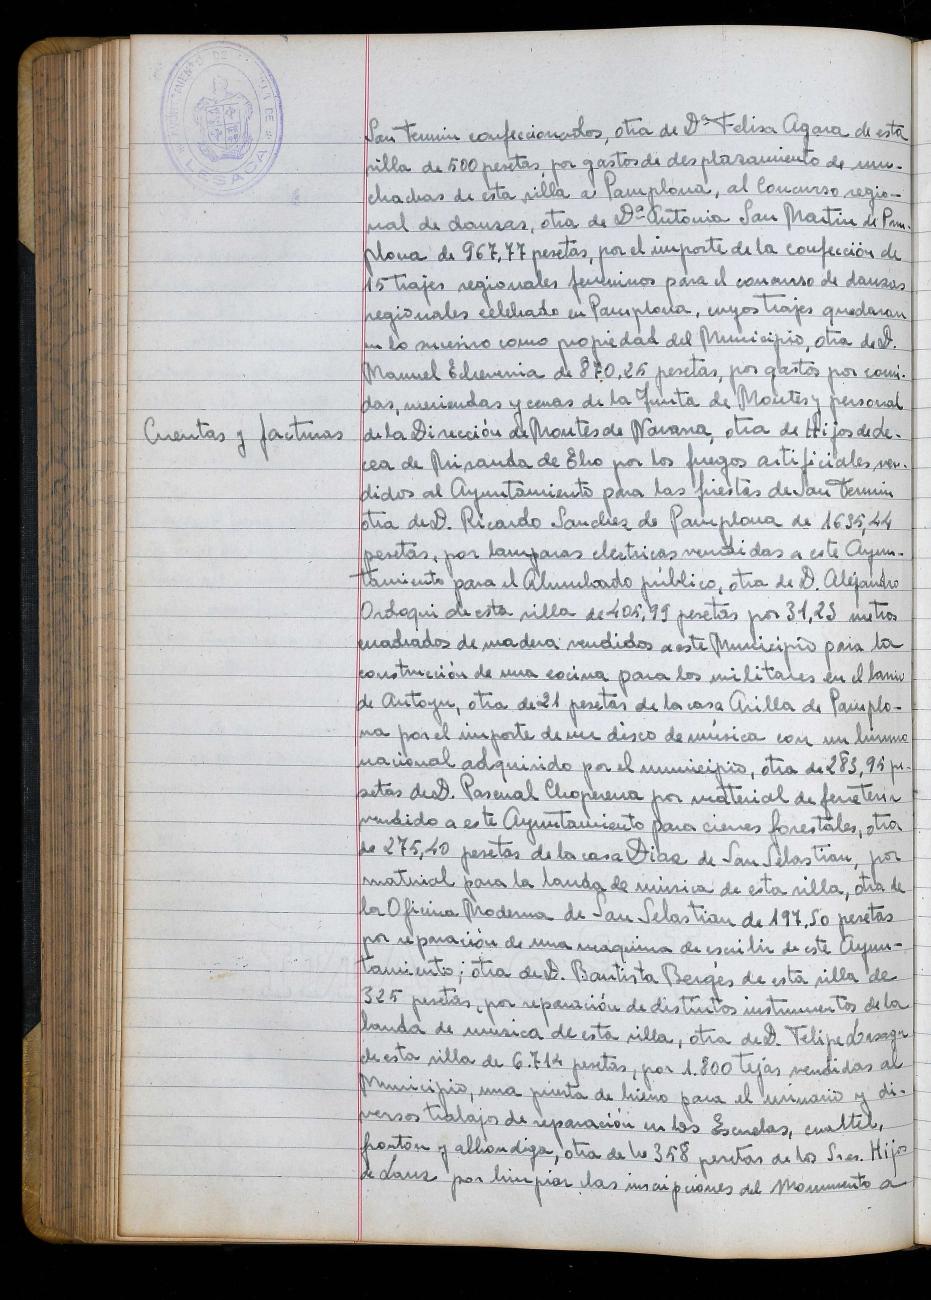 AYUNTAMIENTO DE LA VILLA DE
LESACA
San Fermin confeccionados, otra de Dª Felisa Agara de esta
villa de 500 pesetas, por gastos de desplazamiento de mu-
chachas de esta villa a Pamplona, al Concurso regio-
nal de danzas, otra de Dª Antonia San Martin de Pam-
plona de 967,77 pesetas, por el importe de la confección de
15 trajes regionales femeninos para el concurso de danzas
regionales celebrado en Pamplona, cuyos trajes quedaran
en lo sucesivo como propiedad del Municipio, otra de D.
Manuel Echeverria de 870,25 pesetas, por gastos por comi-
das, meriendas y cenas de la Junta de Montes y personal
Cuentas y facturas
de la Dirección de Montes de Navarra, otra de Hijos de
de Miranda de Ebro por los fuegos artificiales ven-
didos al Ayuntamiento para las fiestas de San Fermin
otra de D. Ricardo Sanchez de Pamplona de 1635,44
pesetas, por lamparas electricas vendidas a este Ayun-
tamiento para el Alumbrado público, otra de D. Alejandro
Ordoqui de esta villa de 405,99 pesetas por 31,23 metros
cuadrados de madera vendidos a este Municipio para la
construcción de una cocina para los militares en el barrio
de otra de 21 pesetas de la casa Arilla de Pamplo-
na por el importe de un disco de música con un himno
nacional adquirido por el municipio, otra de 283,95 pe-
setas de D. Pascual Choperena por material de ferreteria
vendido a este Ayuntamiento para cierres forestales, otra
de 275,40 pesetas de la casa Diaz de San Sebastian, por
material para la banda de música de esta villa, otra de
la Oficina Moderna de San Sebastian de 197,50 pesetas
por reparación de una maquina de escribir de este Ayun-
tamiento; otra de D. Bautista Bergés de esta villa de
325 pesetas, por reparación de distintos instrumentos de la
banda de musica de esta villa, otra de D. Felipe
de esta villa de 6.714 pesetas, por 1.800 tejas vendidas al
Municipio, una puerta de hierro para el urinario y di-
versos trabajos de reparación en las Escuelas, cuartel,
fronton y alhondiga, otra de 358 pesetas de los Sres. Hijos
de Lanz por limpiar las inscripciones del Monumento a